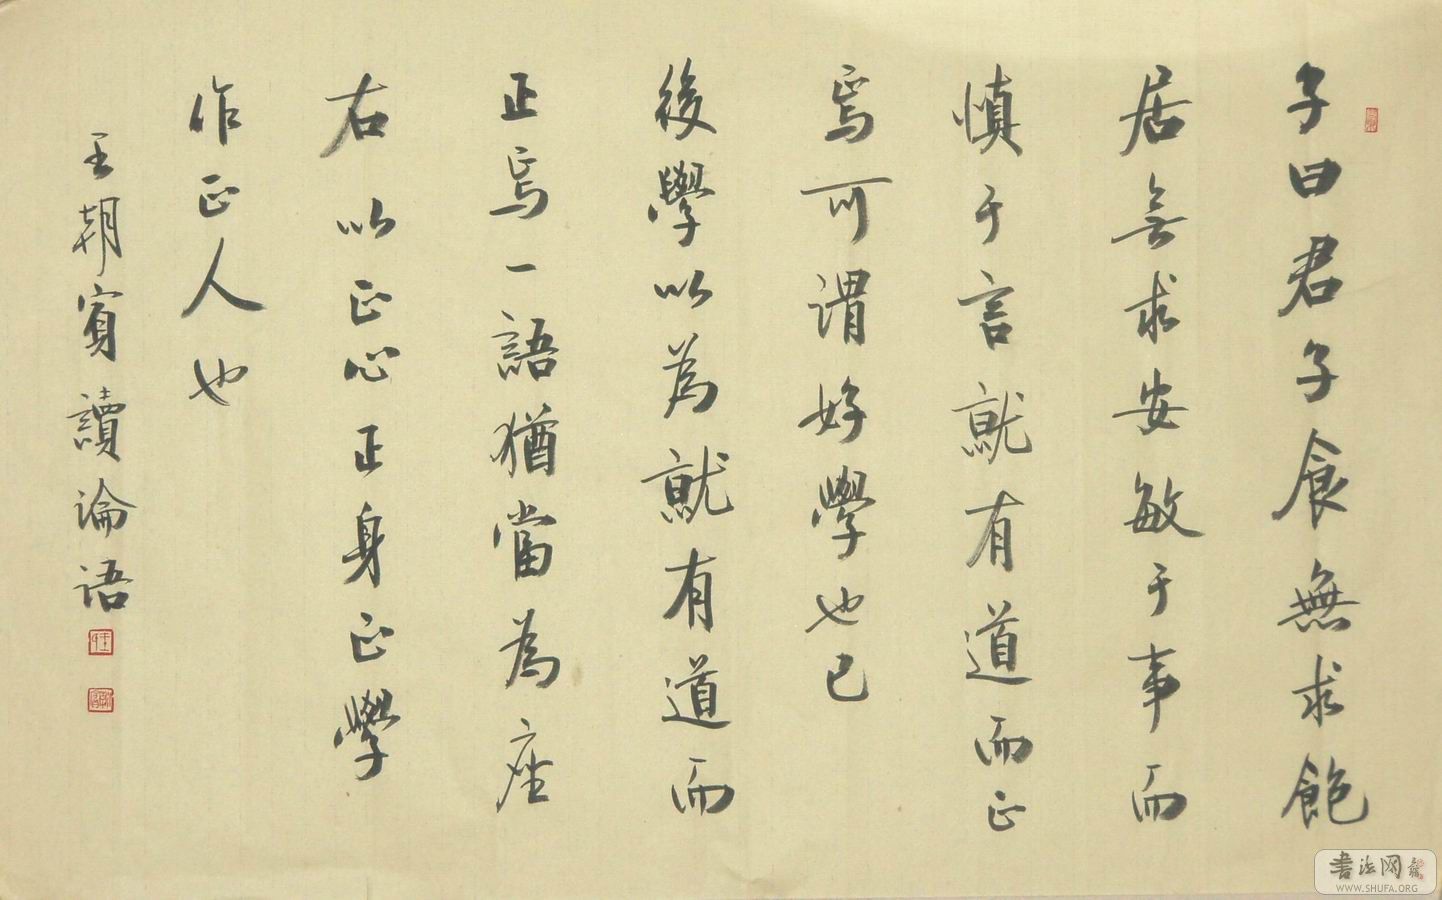 子曰君子食無求飽
居無求安敏于事而
慎于言就有道而正
焉可謂好學也已
後學以為就有道而
正焉一語猶當為座
右以正心正身正學
作正人也
王朝賓讀論语
書法网
WWW.SHUFA.ORG